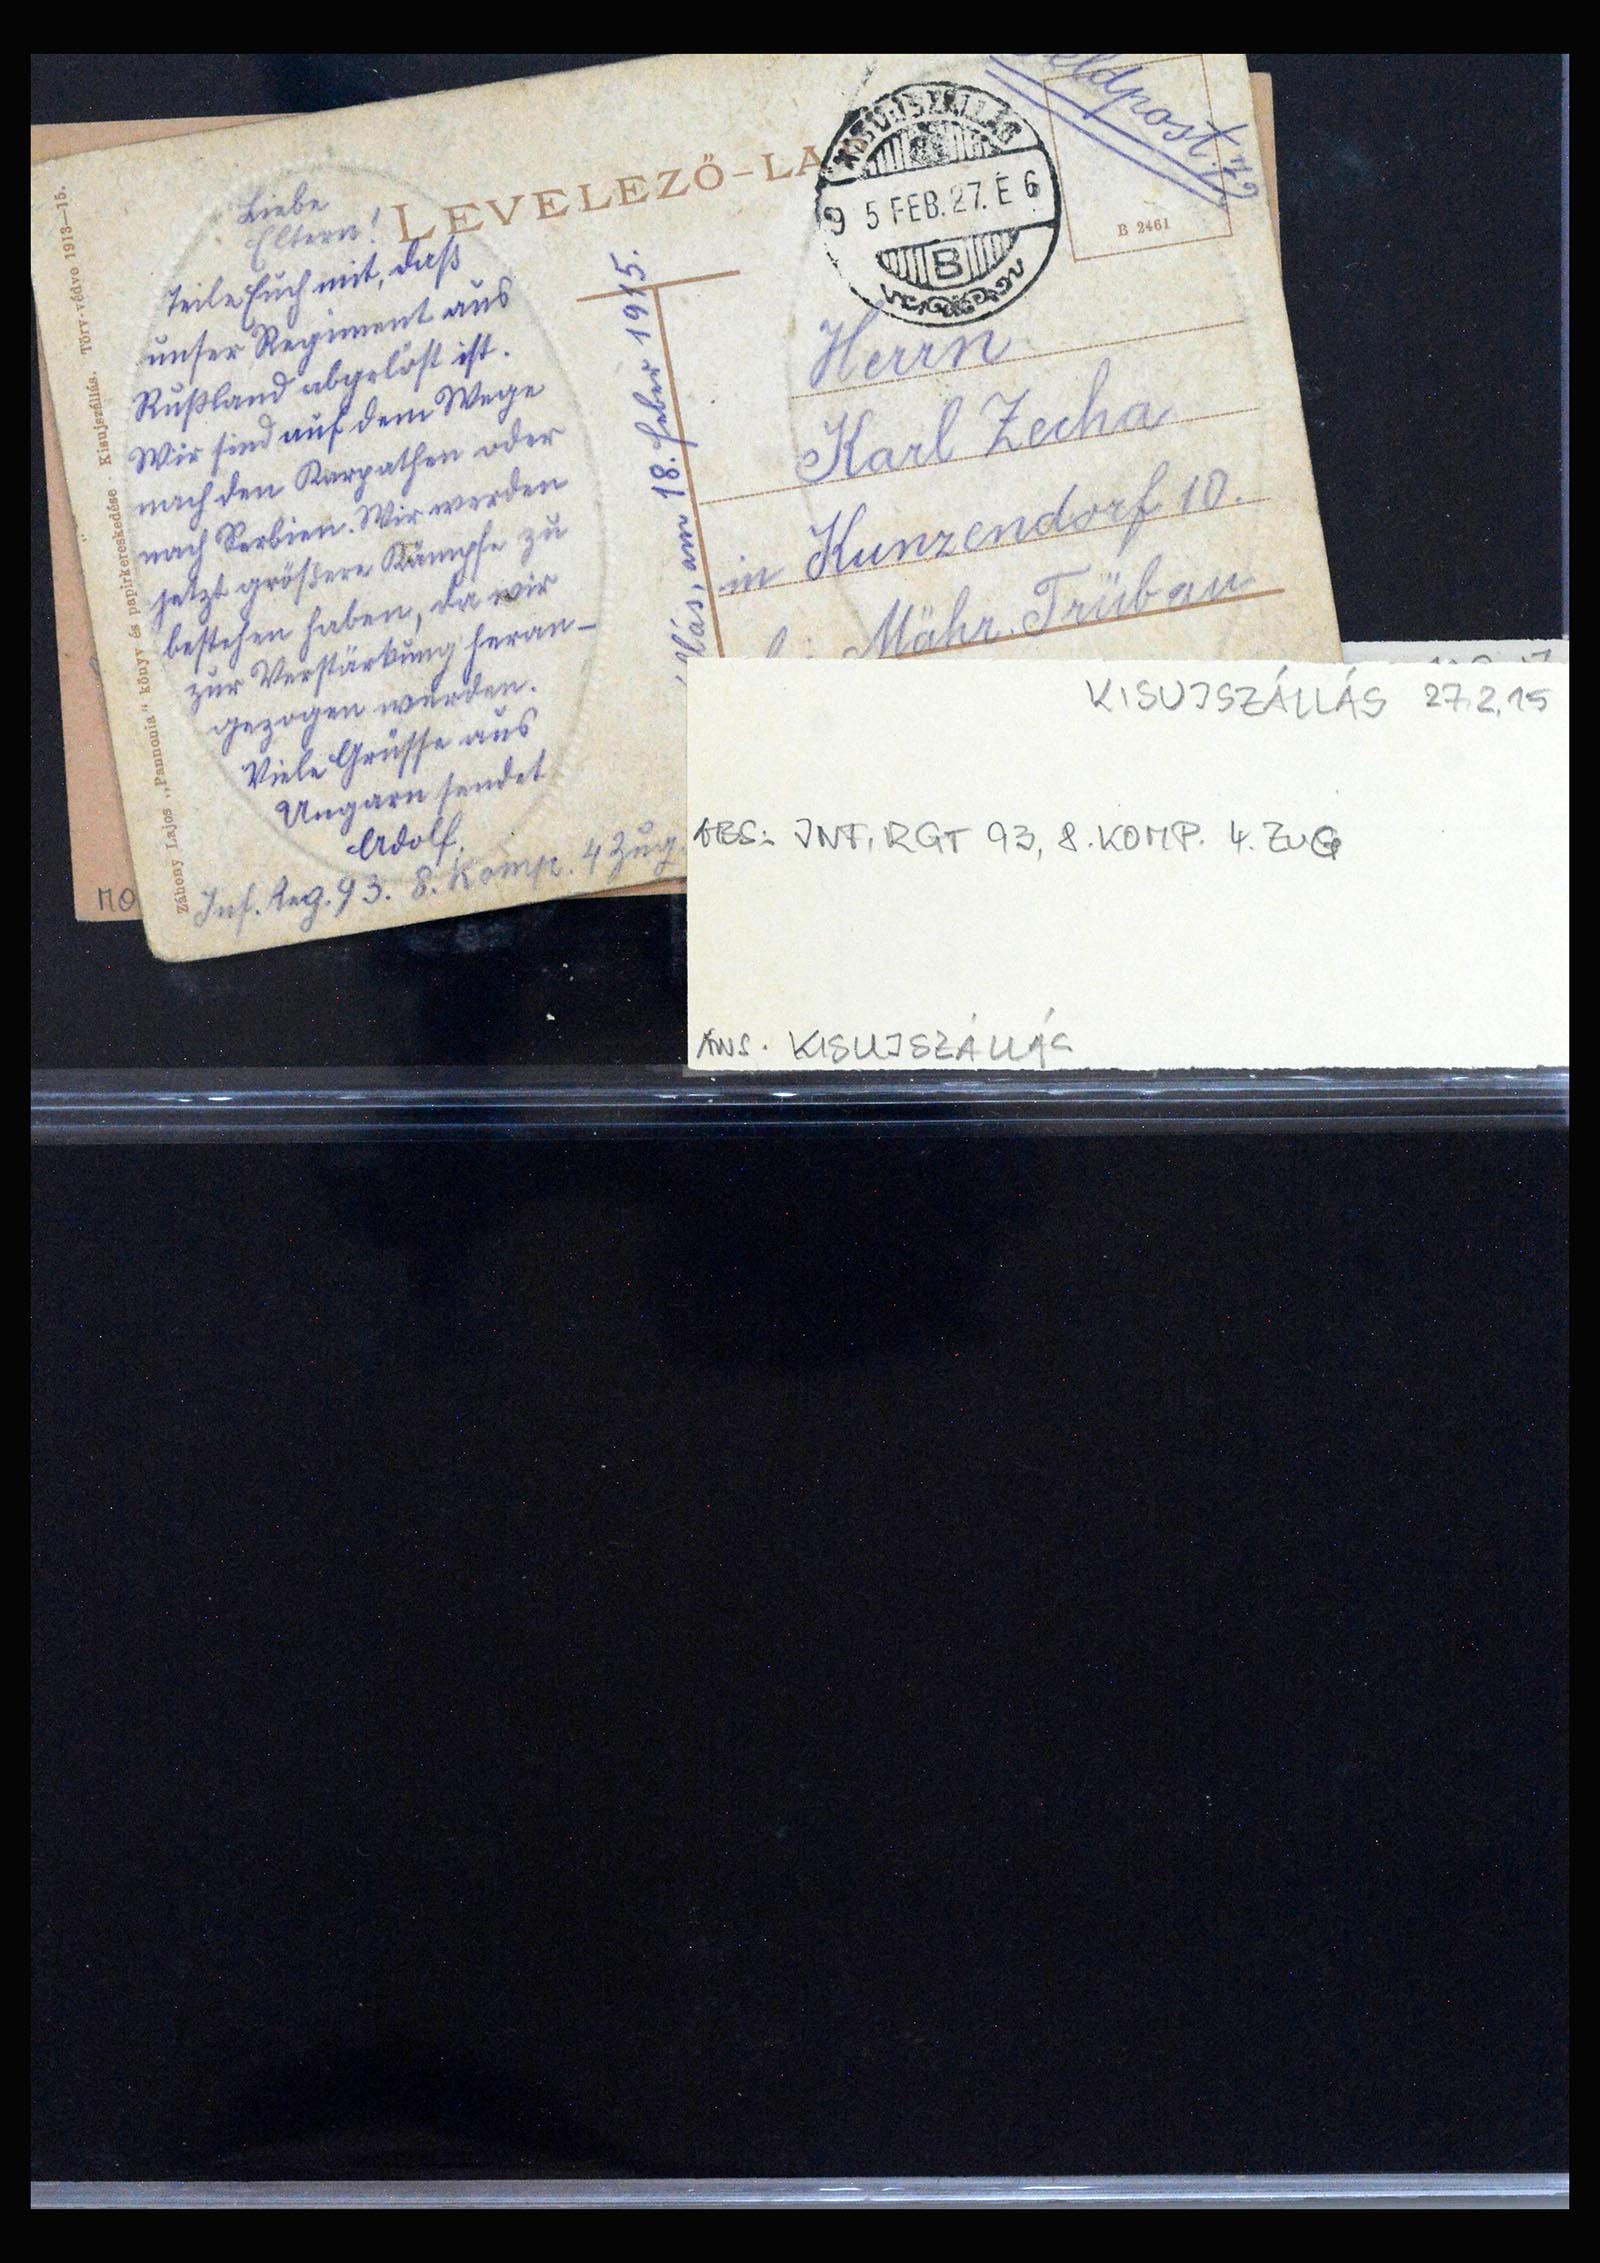 eldpost.
LEVELEZŐ-LA
KISUJSZÁLLÁS
9 5 FEB. 27. E 6
B
B 2461
Liebe
Eltern!
Teile Euch mit, daß
unser Regiment aus
Rußland abgelöst ist.
Wir sind auf dem Wege
nach den Karpathen oder
nach Serbien. Wir werden
jetzt größere Kämpfe zu
bestehen haben, da wir
zur Verstärkung heran-
gezogen wurden.
Viele Grüsse aus
Ungarn sendet
Adolf.
Inf. Reg. 93. 8. Komp. 4 Zug.
llás, am 18. Feber 1915.
Herrn
Karl Zecha
in Kunzendorf 10.
Mähr. Trübau
Záhony Lajos „Pannonia" könyv és papirkereskedése - Kisujszállás. Törv. védve 1913—15.
MO
KISUJSZÁLLÁS 27.2.15
ABS: INF. RGT 93, 8. KOMP. 4. ZUG
ANS. KISUJSZÁLLÁS